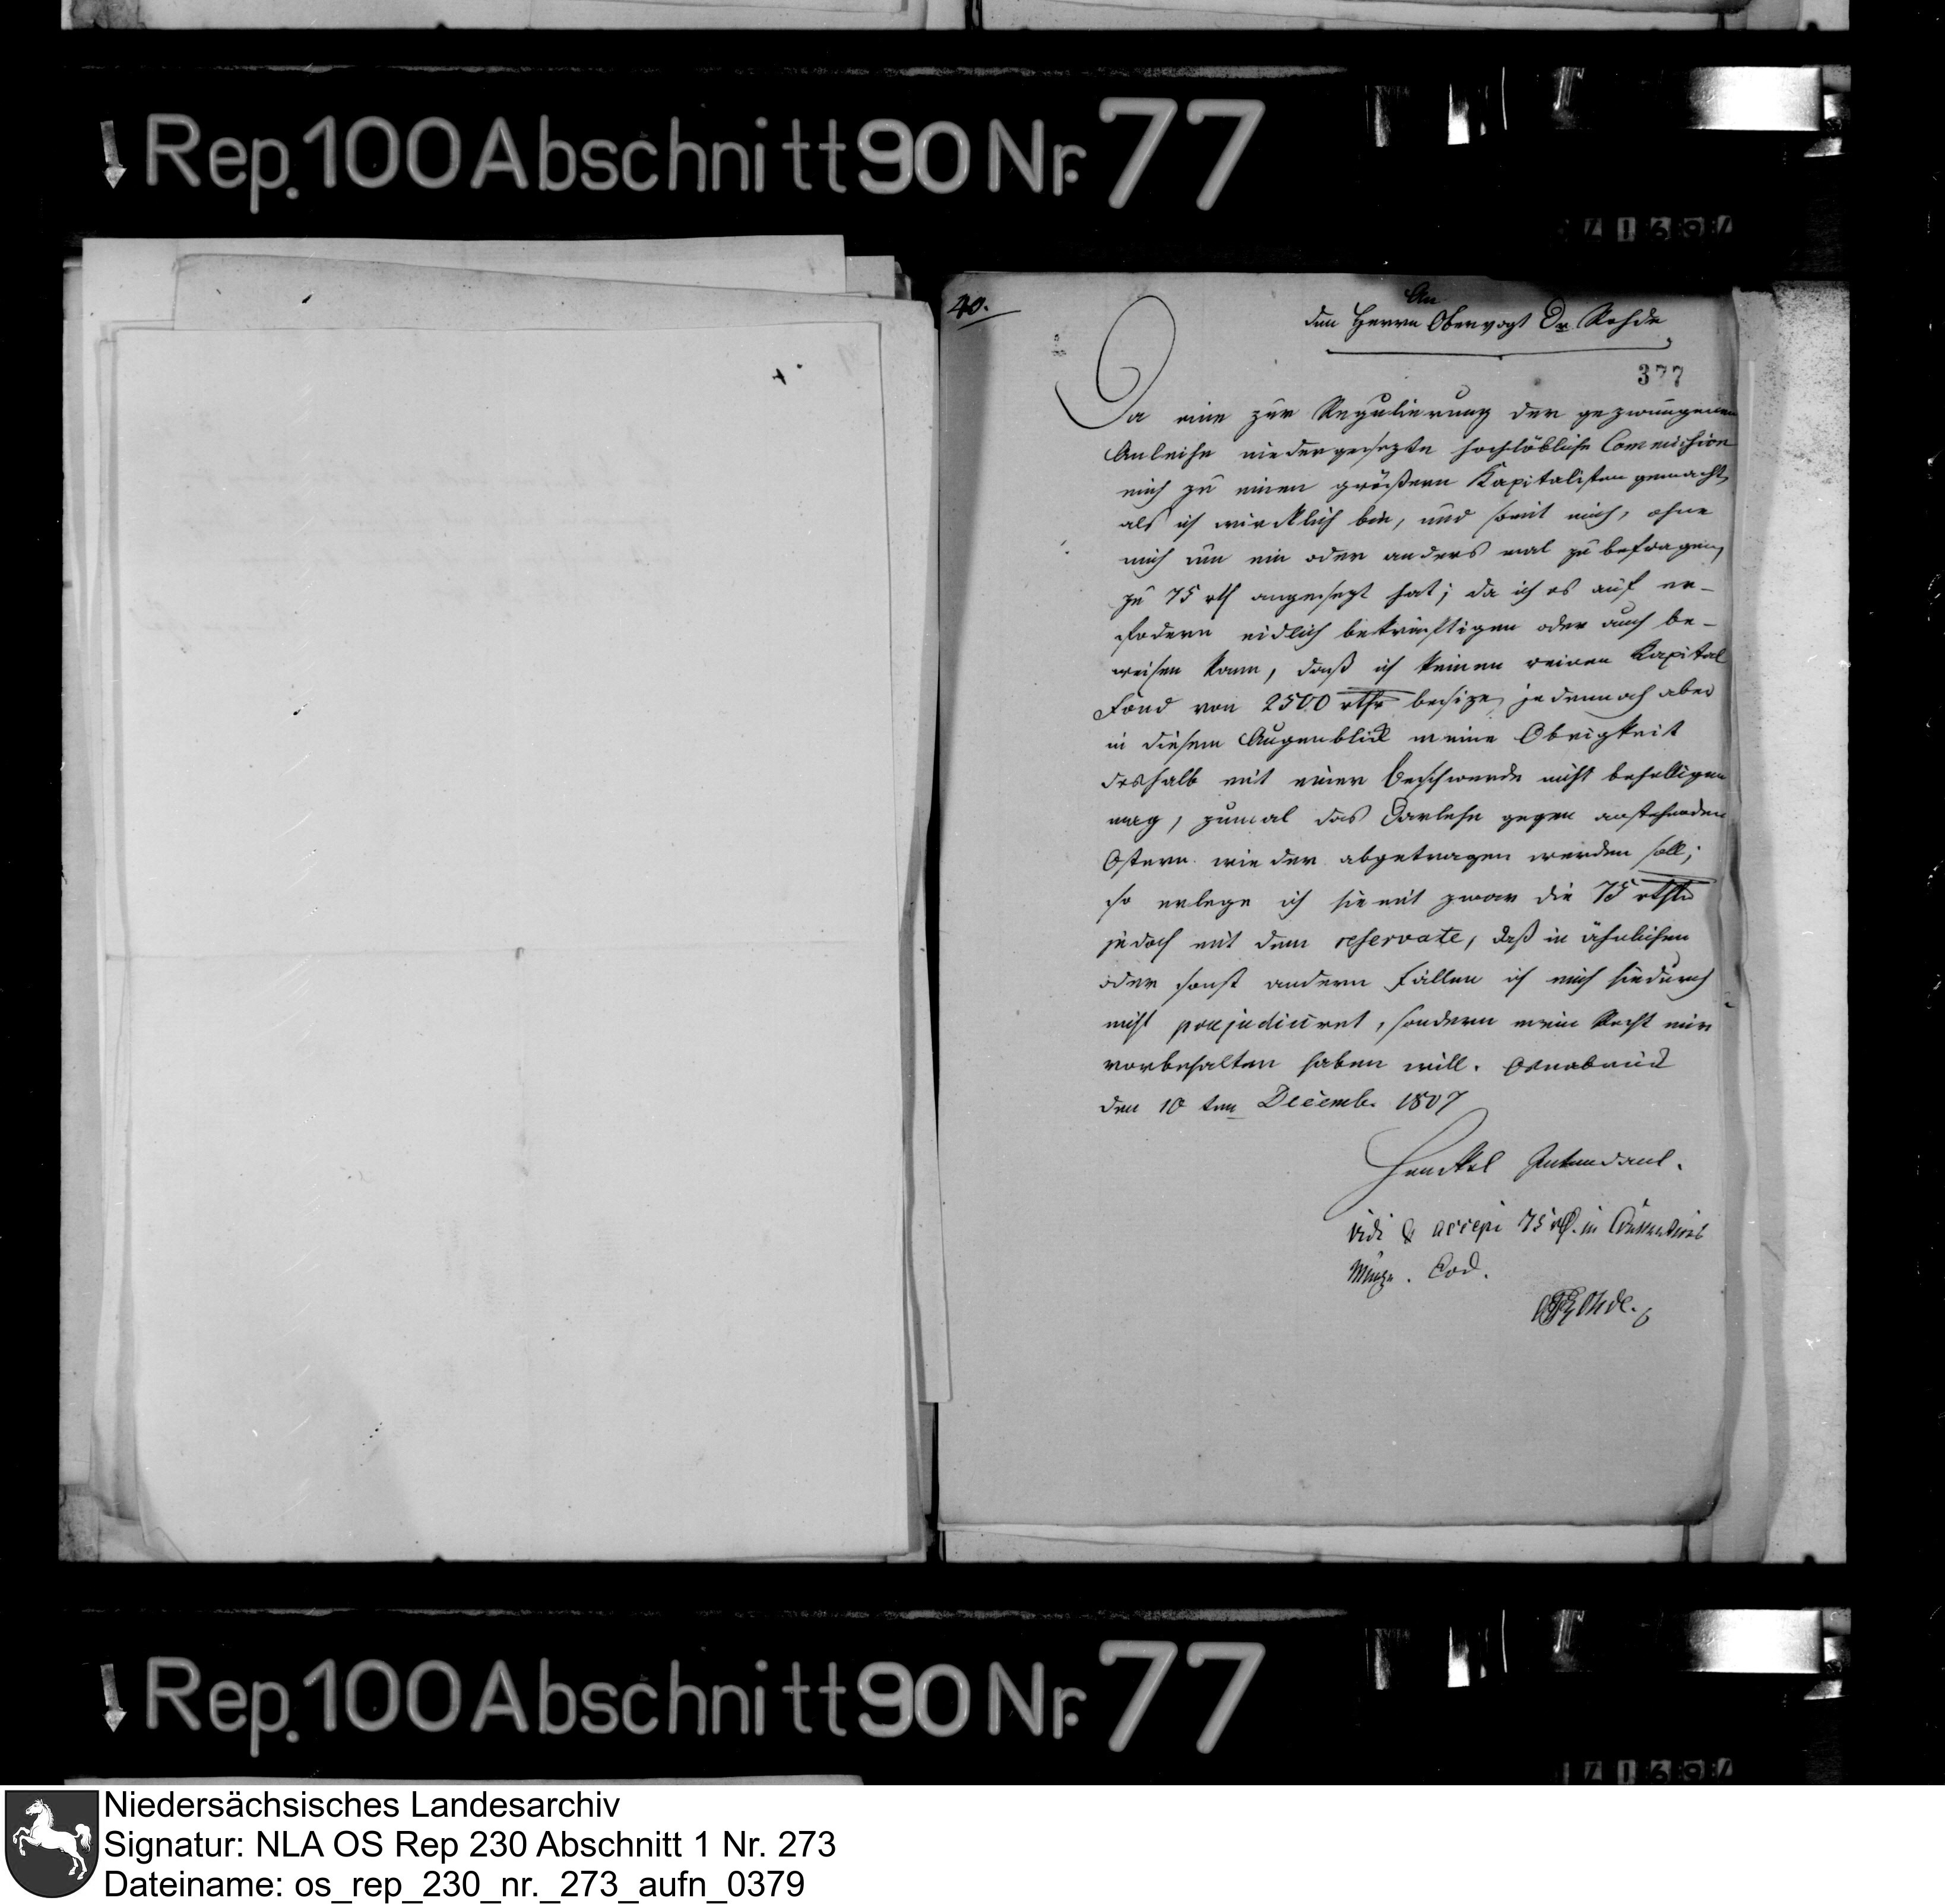 Rep. 100 Abschnitt 90 Nr. 77
40.
An
den Herrn Obervogt Dr Rohde
377
Da eine zur Regulierung der gezwungenen
Anleihe niedergesezte hochlöbliche Commission
mich zu einen größern Kapitalisten gemacht,
als ich wircklich bin, und somit mich, ohne
mich um ein oder anders mal zu befragen,
zu 75 rth angesezt hat; da ich es auf er-
fodern eidlich bekräftigen oder auch be-
weisen kann, daß ich keinen reinen Kapital
Fond von 2500 rthr besize, jedennoch aber
in diesem Augenblick meine Obrigkeit
deshalb mit einer Beschwerde nicht behelligen
mag, zumal das Darlehn gegen anstehenden
Ostern wieder abgetragen werden soll;
so erlege ich hiemit zwar die 75 rthlr
jedoch mit dem reservate, daß in ähnlichen
oder sonst andern Fällen ich mich hiedurch
nicht praejudiciret, sondern mein Recht mir
vorbehalten haben will. Osnabrück
den 10 ten Decemb. 1807
Henckel Intendant.
vidi & accepi 75 rth. in Conventions
Münze. Eod.
Rohde.
Rep. 100 Abschnitt 90 Nr. 77
Niedersächsisches Landesarchiv
Signatur: NLA OS Rep 230 Abschnitt 1 Nr. 273
Dateiname: os_rep_230_nr._273_aufn_0379